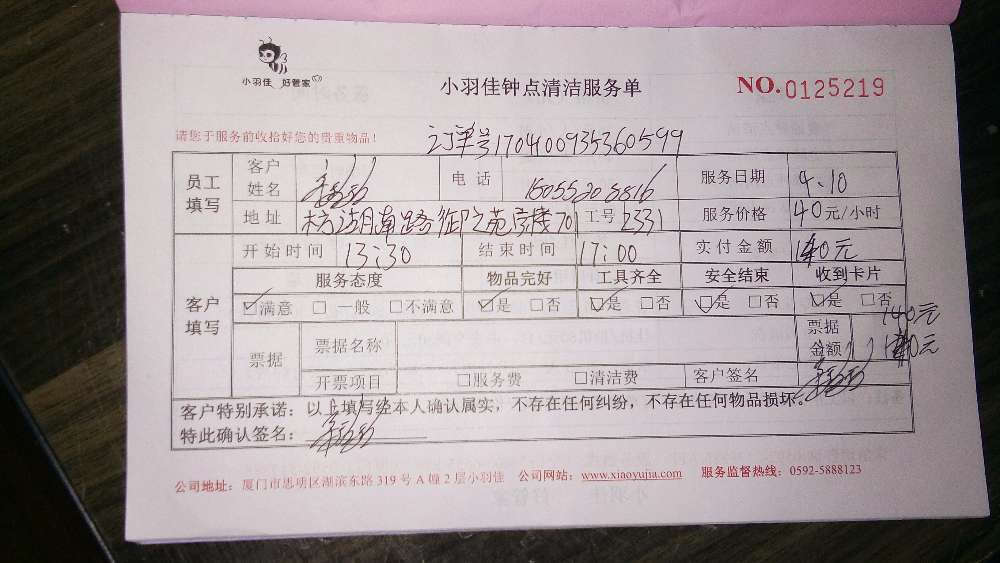 小羽佳 好管家
小羽佳钟点清洁服务单
NO.0125219
请您于服务前收拾好您的贵重物品！
订单号17041009353360599
员工填写 客户姓名 电话 服务日期 4.10
地址 工号 2331 服务价格 40元/小时
客户填写 开始时间 13:30 结束时间 17:00 实付金额 140元
服务态度 物品完好 工具齐全 安全结束 收到卡片
☑满意 □一般 □不满意 ☑是 □否 ☑是 □否 ☑是 □否 ☑是 □否
票据 票据名称 票据金额 140元
开票项目 □服务费 □清洁费 客户签名
客户特别承诺：以上填写经本人确认属实，不存在任何纠纷，不存在任何物品损坏。
特此确认签名：
公司地址：厦门市思明区湖滨东路319号A幢2层小羽佳 公司网站：www.xiaoyujia.com 服务监督热线：0592-5888123